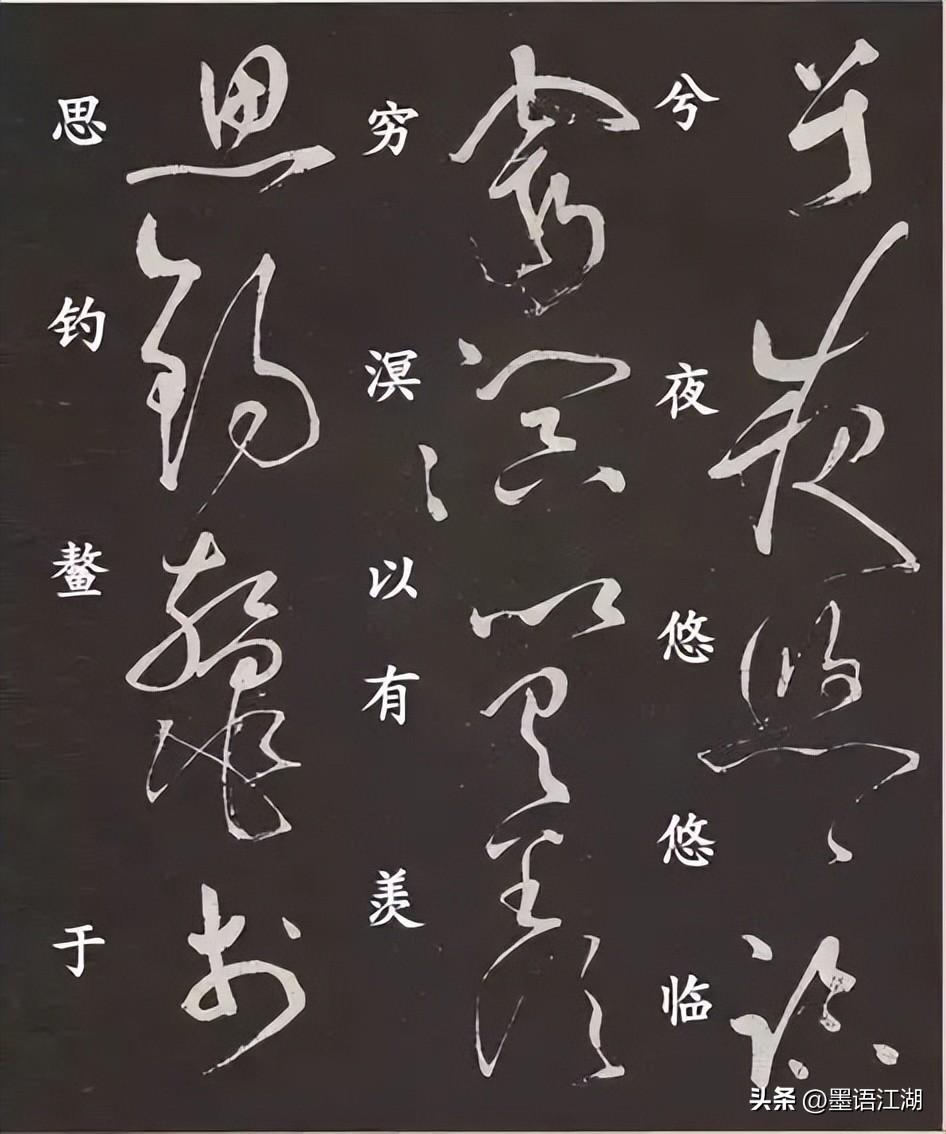 兮夜悠悠临
穷溟以有羡
思钓鳌于
头条 @墨语江湖